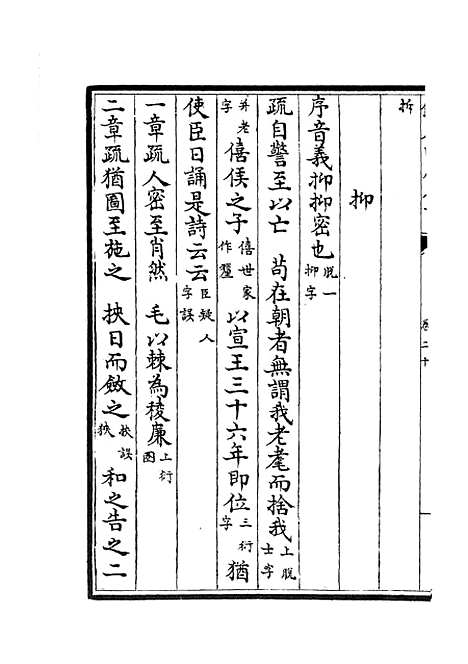 卷二十
抑
序音義抑抑密也脫一抑字
疏自警至以亡　苟在朝者無謂我老耄而捨我上脫士字
并老字　僖侯之子僖世家作釐　以宣王三十六年即位三衍字　猶
使臣日誦是詩云云臣疑人字誤
一章疏人密至肖然　毛以棘為稜廉上衍
二章疏猶圖至施之　挾日而斂之挾誤狹　和之告之二